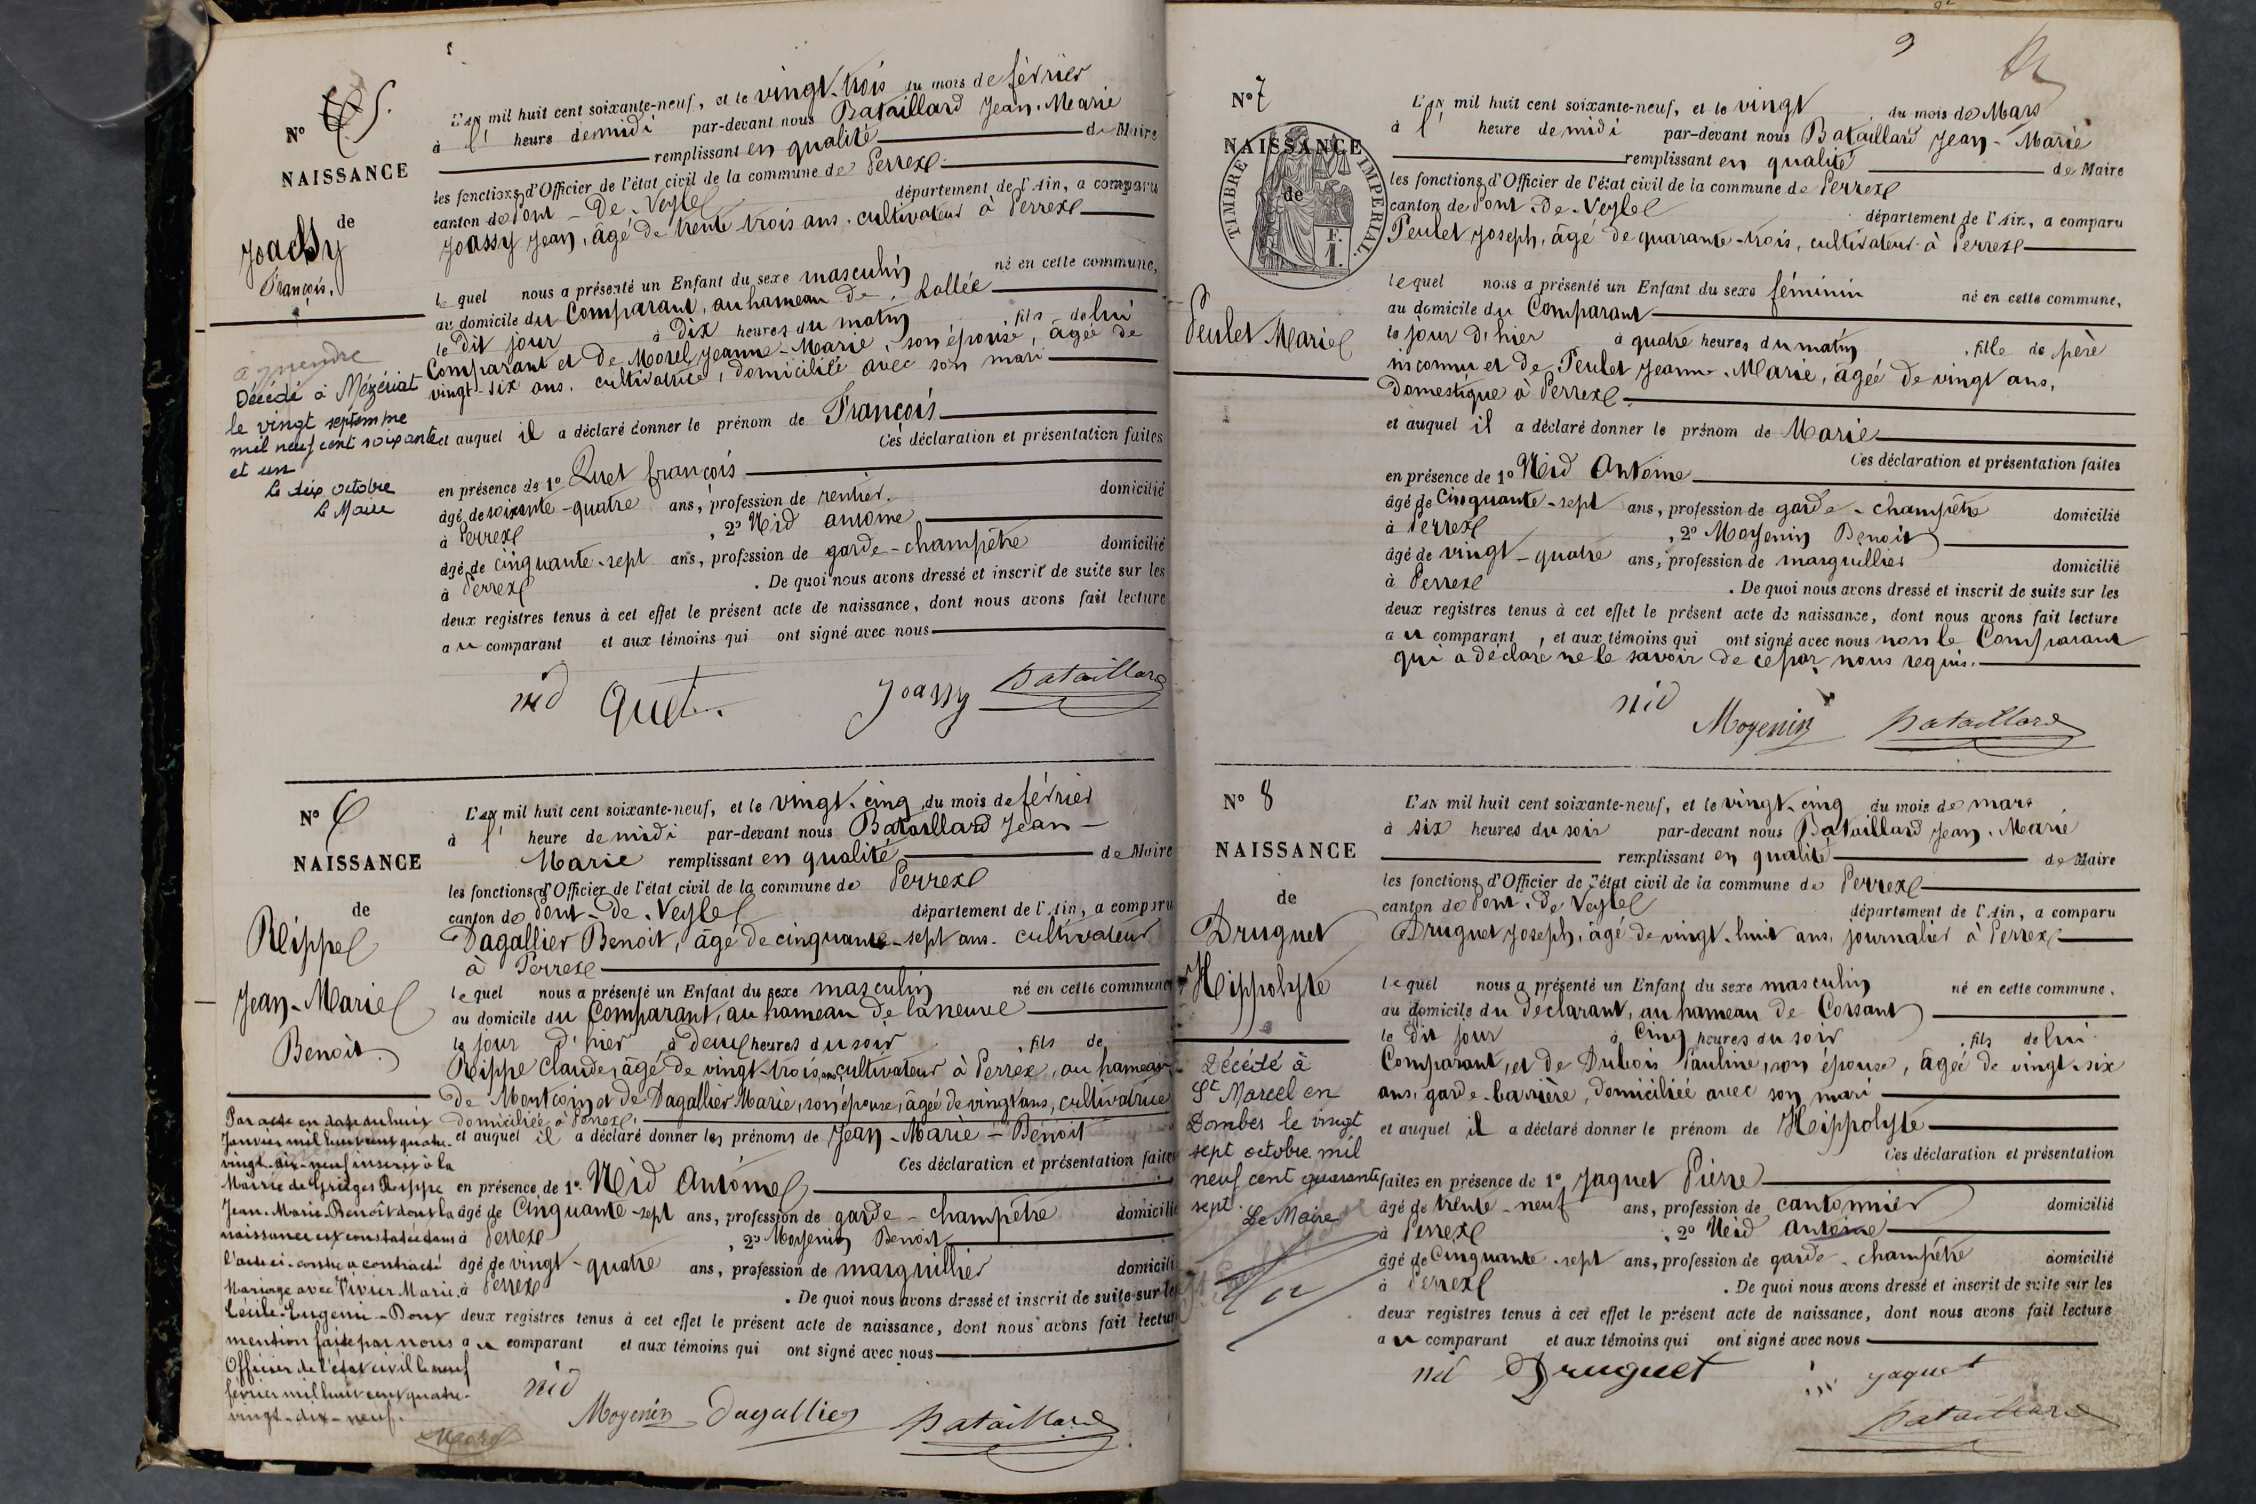 N° 5.
NAISSANCE
de
Joassy
François.
à prendre
Décédé à Mézériat
le vingt septembre
mil neuf cent soixante
et un
Le dix octobre
Le Maire
L'AN mil huit cent soixante-neuf, et le vingt-trois du mois de février
à l' heure de midi par-devant nous Bataillard Jean-Marie
remplissant en qualité de Maire
les fonctions d'Officier de l'état civil de la commune de Perrex
canton de Pont-de-Veyle département de l'Ain, a comparu
Joassy Jean, âgé de trente trois ans. cultivateur à Perrex
lequel nous a présenté un Enfant du sexe masculin né en cette commune,
au domicile du Comparant, au hameau de
le dit jour à dix heures du matin, fils de lui
Comparant et de Morel Jeanne-Marie, son épouse, âgée de
vingt-six ans, cultivatrice, domiciliée avec son mari
et auquel il a déclaré donner le prénom de François
Ces déclaration et présentation faites
en présence de 1° Quet françois
âgé de soixante-quatre ans, profession de rentier. domicilié
à Perrex, 2° Nid antoine
âgé de cinquante-sept ans, profession de garde-champêtre domicilié
à Perrex. De quoi nous avons dressé et inscrit de suite sur les
deux registres tenus à cet effet le présent acte de naissance, dont nous avons fait lecture
au comparant et aux témoins qui ont signé avec nous
nid Quet. Joassy Bataillard
N° 6
NAISSANCE
de
Rippe
Jean-Marie
Benoit.
Par acte en date du huit
Janvier mil huit cent quatre-
vingt-dix-neuf inscrit à la
Mairie de Grièges Rippe
Jean-Marie-Benoît dont la
naissance est constatée dans
l'acte ci-contre a contracté
Mariage avec Vivier Marie
Cécile-Eugénie-Dont
mention faite par nous
Officier de l'état civil le neuf
février mil huit cent quatre-
vingt-dix-neuf.
L'AN mil huit cent soixante-neuf, et le vingt-cinq du mois de février
à l' heure de midi par-devant nous Bataillard Jean-
Marie remplissant en qualité de Maire
les fonctions d'Officier de l'état civil de la commune de Perrex
canton de Pont-de-Veyle département de l'Ain, a comparu
Dagallier Benoit, âgé de cinquante-sept ans. cultivateur
à Perrex
lequel nous a présenté un Enfant du sexe masculin né en cette commune
au domicile du Comparant, au hameau de
le jour d'hier à deux heures du soir, fils de
Rippe Claude, âgé de vingt-trois ans, cultivateur à Perrex, au hameau
de Montcoin et de Dagallier Marie, son épouse, âgée de vingt ans, cultivatrice
domiciliée à Perrex,
et auquel il a déclaré donner les prénoms de Jean-Marie-Benoit
Ces déclaration et présentation faites
en présence de 1° Nid Antoine
âgé de Cinquante-sept ans, profession de garde-champêtre domicilié
à Perrex, 2° Moyenin Benoit
âgé de vingt-quatre ans, profession de marguillier domicilié
à Perrex. De quoi nous avons dressé et inscrit de suite sur les
deux registres tenus à cet effet le présent acte de naissance, dont nous avons fait lecture
au comparant et aux témoins qui ont signé avec nous
nid Moyenin Dagallier Bataillard
9
N° 7
NAISSANCE
de
TIMBRE IMPERIAL.
1 F.
Peulet Marie
L'AN mil huit cent soixante-neuf, et le vingt du mois de Mars
à l' heure de midi par-devant nous Bataillard Jean-Marie
remplissant en qualité de Maire
les fonctions d'Officier de l'état civil de la commune de Perrex
canton de Pont-de-Veyle département de l'Ain, a comparu
Peulet Joseph, âgé de quarante-trois, cultivateur à Perrex
lequel nous a présenté un Enfant du sexe féminin né en cette commune,
au domicile du Comparant
le jour d'hier à quatre heures du matin, fille de père
inconnu et de Peulet Jeanne-Marie, âgée de vingt ans,
domestique à Perrex
et auquel il a déclaré donner le prénom de Marie
Ces déclaration et présentation faites
en présence de 1° Nid Antoine
âgé de Cinquante-sept ans, profession de garde-champêtre domicilié
à Perrex, 2° Moyenin Benoit
âgé de vingt-quatre ans, profession de marguillier domicilié
à Perrex. De quoi nous avons dressé et inscrit de suite sur les
deux registres tenus à cet effet le présent acte de naissance, dont nous avons fait lecture
au comparant, et aux témoins qui ont signé avec nous non le Comparant
qui a déclaré ne le savoir de ce par nous requis.
nid Moyenin Bataillard
N° 8
NAISSANCE
de
Druguet
Hippolyte
Décédé à
St Marcel en
Dombes le vingt
sept octobre mil
neuf cent quarante
sept.
Le Maire
L'AN mil huit cent soixante-neuf, et le vingt-cinq du mois de mars
à six heures du soir par-devant nous Bataillard Jean-Marie
remplissant en qualité de Maire
les fonctions d'Officier de l'état civil de la commune de Perrex
canton de Pont-de-Veyle département de l'Ain, a comparu
Druguet Joseph, âgé de vingt-huit ans, journalier à Perrex
lequel nous a présenté un Enfant du sexe masculin né en cette commune,
au domicile du déclarant, au hameau de Corsant
le dit jour à Cinq heures du soir, fils de lui
Comparant, et de Dubois Pauline, son épouse, âgée de vingt-six
ans, garde-barrière, domiciliée avec son mari
et auquel il a déclaré donner le prénom de Hippolyte
Ces déclaration et présentation
faites en présence de 1° Jaquet Pierre
âgé de trente-neuf ans, profession de cantonnier domicilié
à Perrex, 2° Nid Antoine
âgé de Cinquante-sept ans, profession de garde-champêtre domicilié
à Perrex. De quoi nous avons dressé et inscrit de suite sur les
deux registres tenus à cet effet le présent acte de naissance, dont nous avons fait lecture
au comparant et aux témoins qui ont signé avec nous
nid Druguet Jaquet
Bataillard